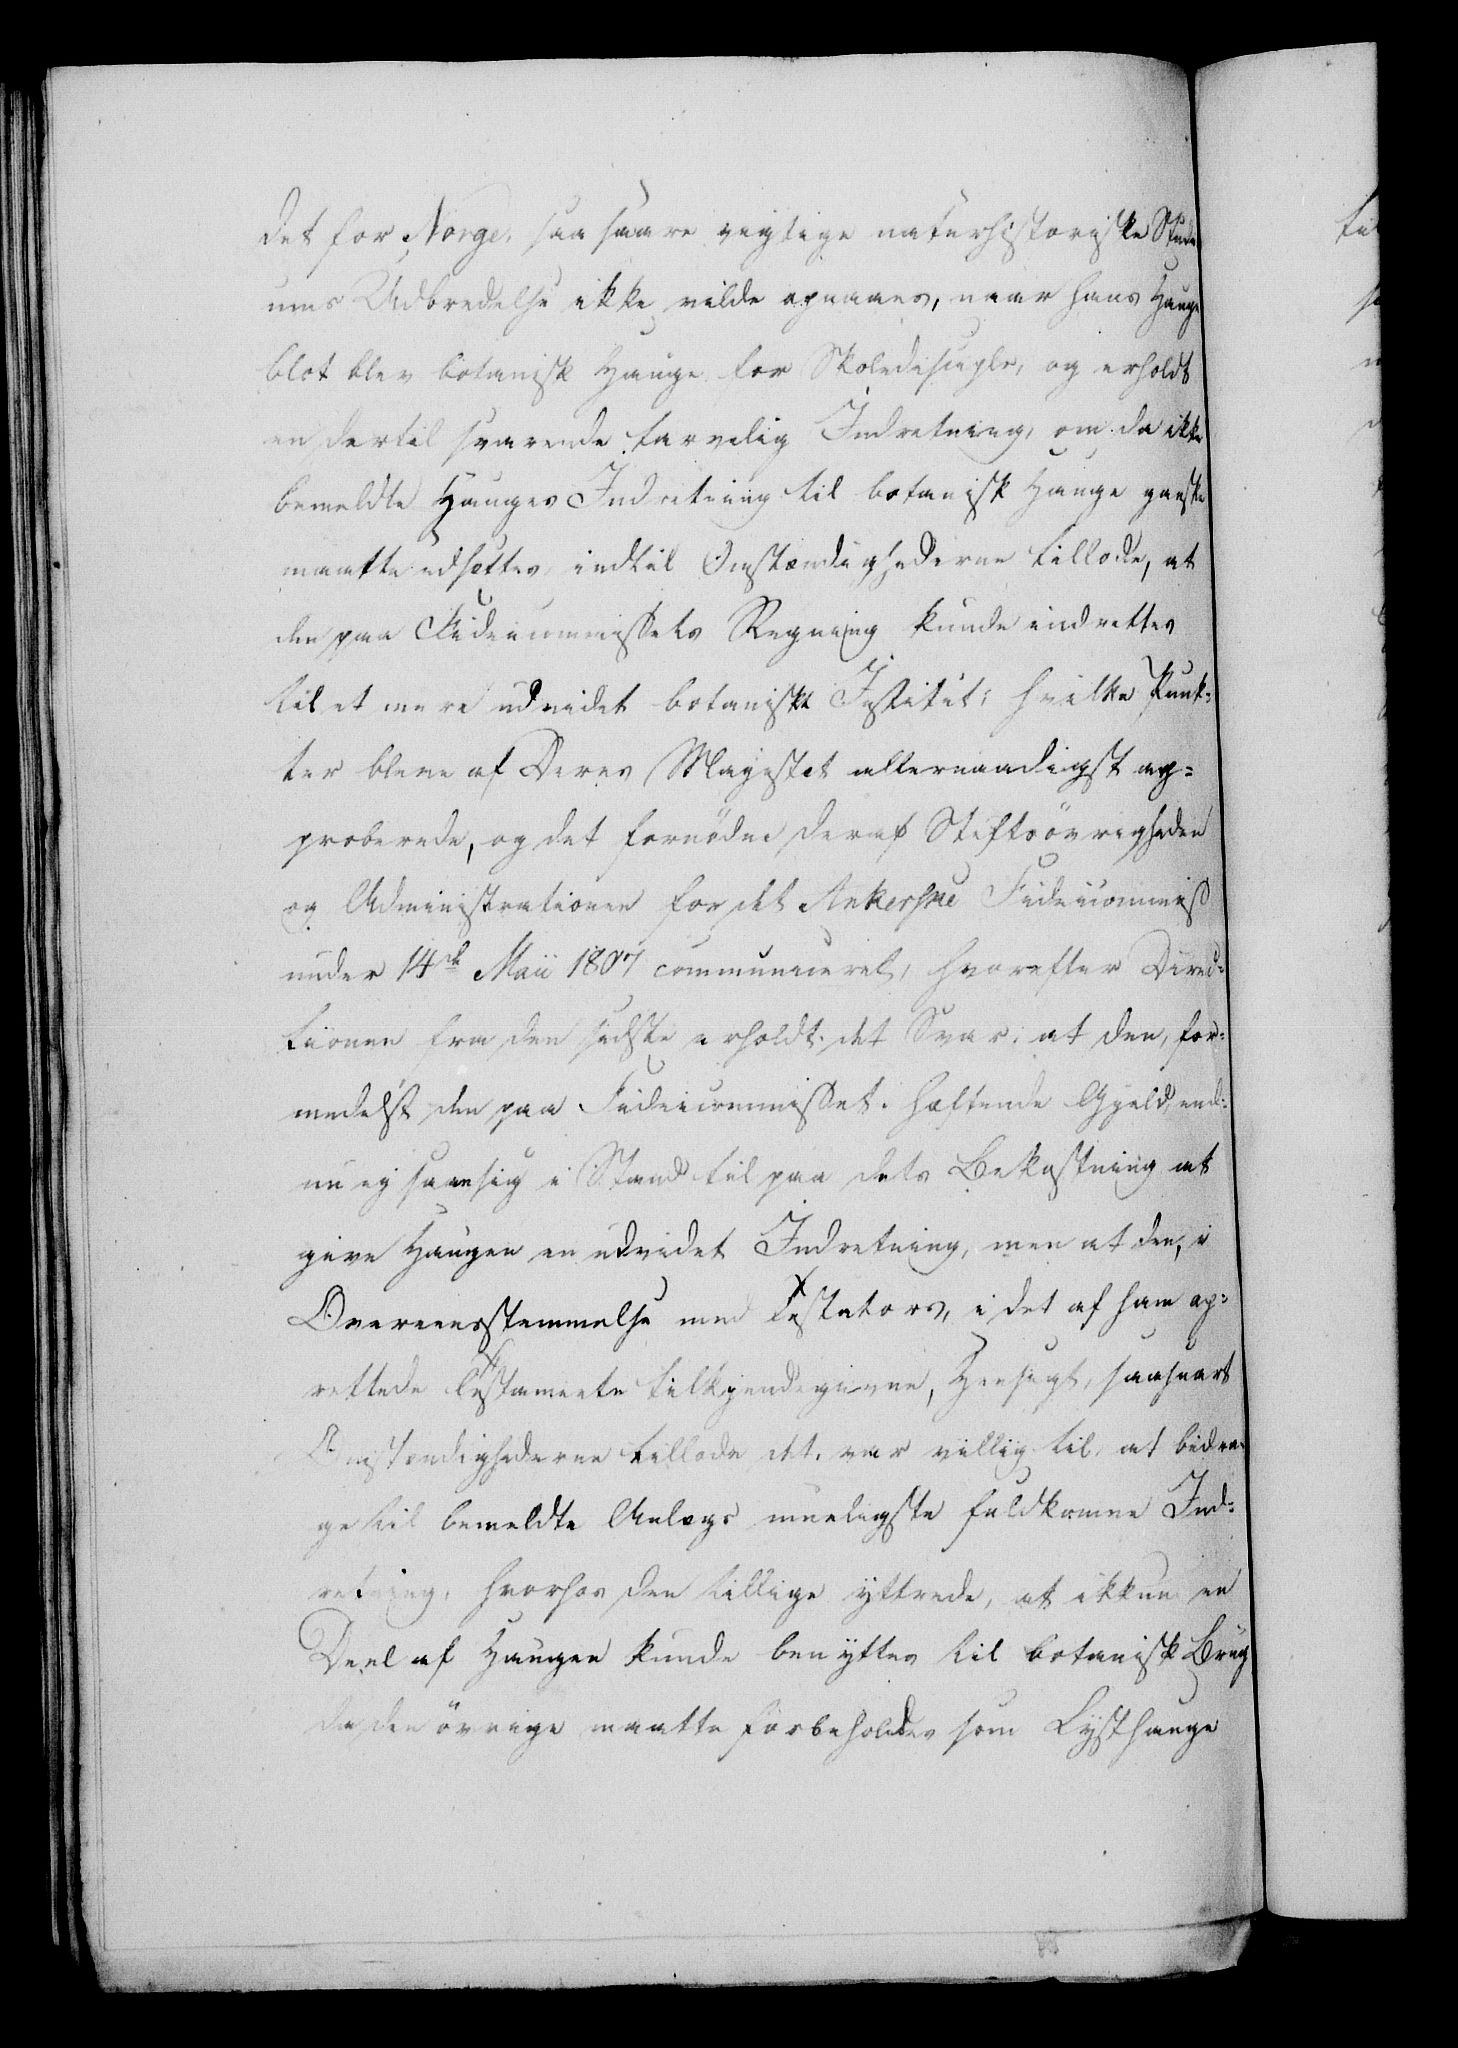 det for Norge, saa saare vigtige naturhistoriske Studi
ums Udbredelse ikke vilde opnaaes, naar hans Hauge
blot blev botanisk Hauge for Skoledisciple, og erholdt
en dertil svarende tarvelig Indretning, om da ikke
bemeldte Hauges Indretning til botanisk Hauge ganske
maatte udsættes, indtil Omstændighederne tillode, at
den paa Fideicommissets Regning kunde indrettes
til et mere udvidet botanisk Institut; hvilke Punk-
ter bleve af Deres Majestæt allernaadigst ap-
proberede, og det fornödne deraf Stiftsövrigheden
og Administrationen for det Ankerske Fideicommis
under 14de Maii 1807 communiceret, hvorefter Direc-
tionen fra den sidste erholdt det Svar, at den, for-
medelst den paa Fideicommisset hæftende Gjeld, end-
nu ej saae sig i Stand til paa dets Bekostning at
give Haugen en udvidet Indretning, men at den, i
Overeensstemmelse med Testators, i det af ham op-
rettede Testamente tilkjendegivne, Hensigt, saasnart
Omstændighederne tillode det, var villig til, at bidra-
ge til bemeldte Anlægs mueligste fuldkomne Ind-
retning, hvorhos den tillige yttrede, at ikkun en
Deel af Haugen kunde benyttes til botanisk Brug
da den övrige maatte forbeholdes som Lysthauge